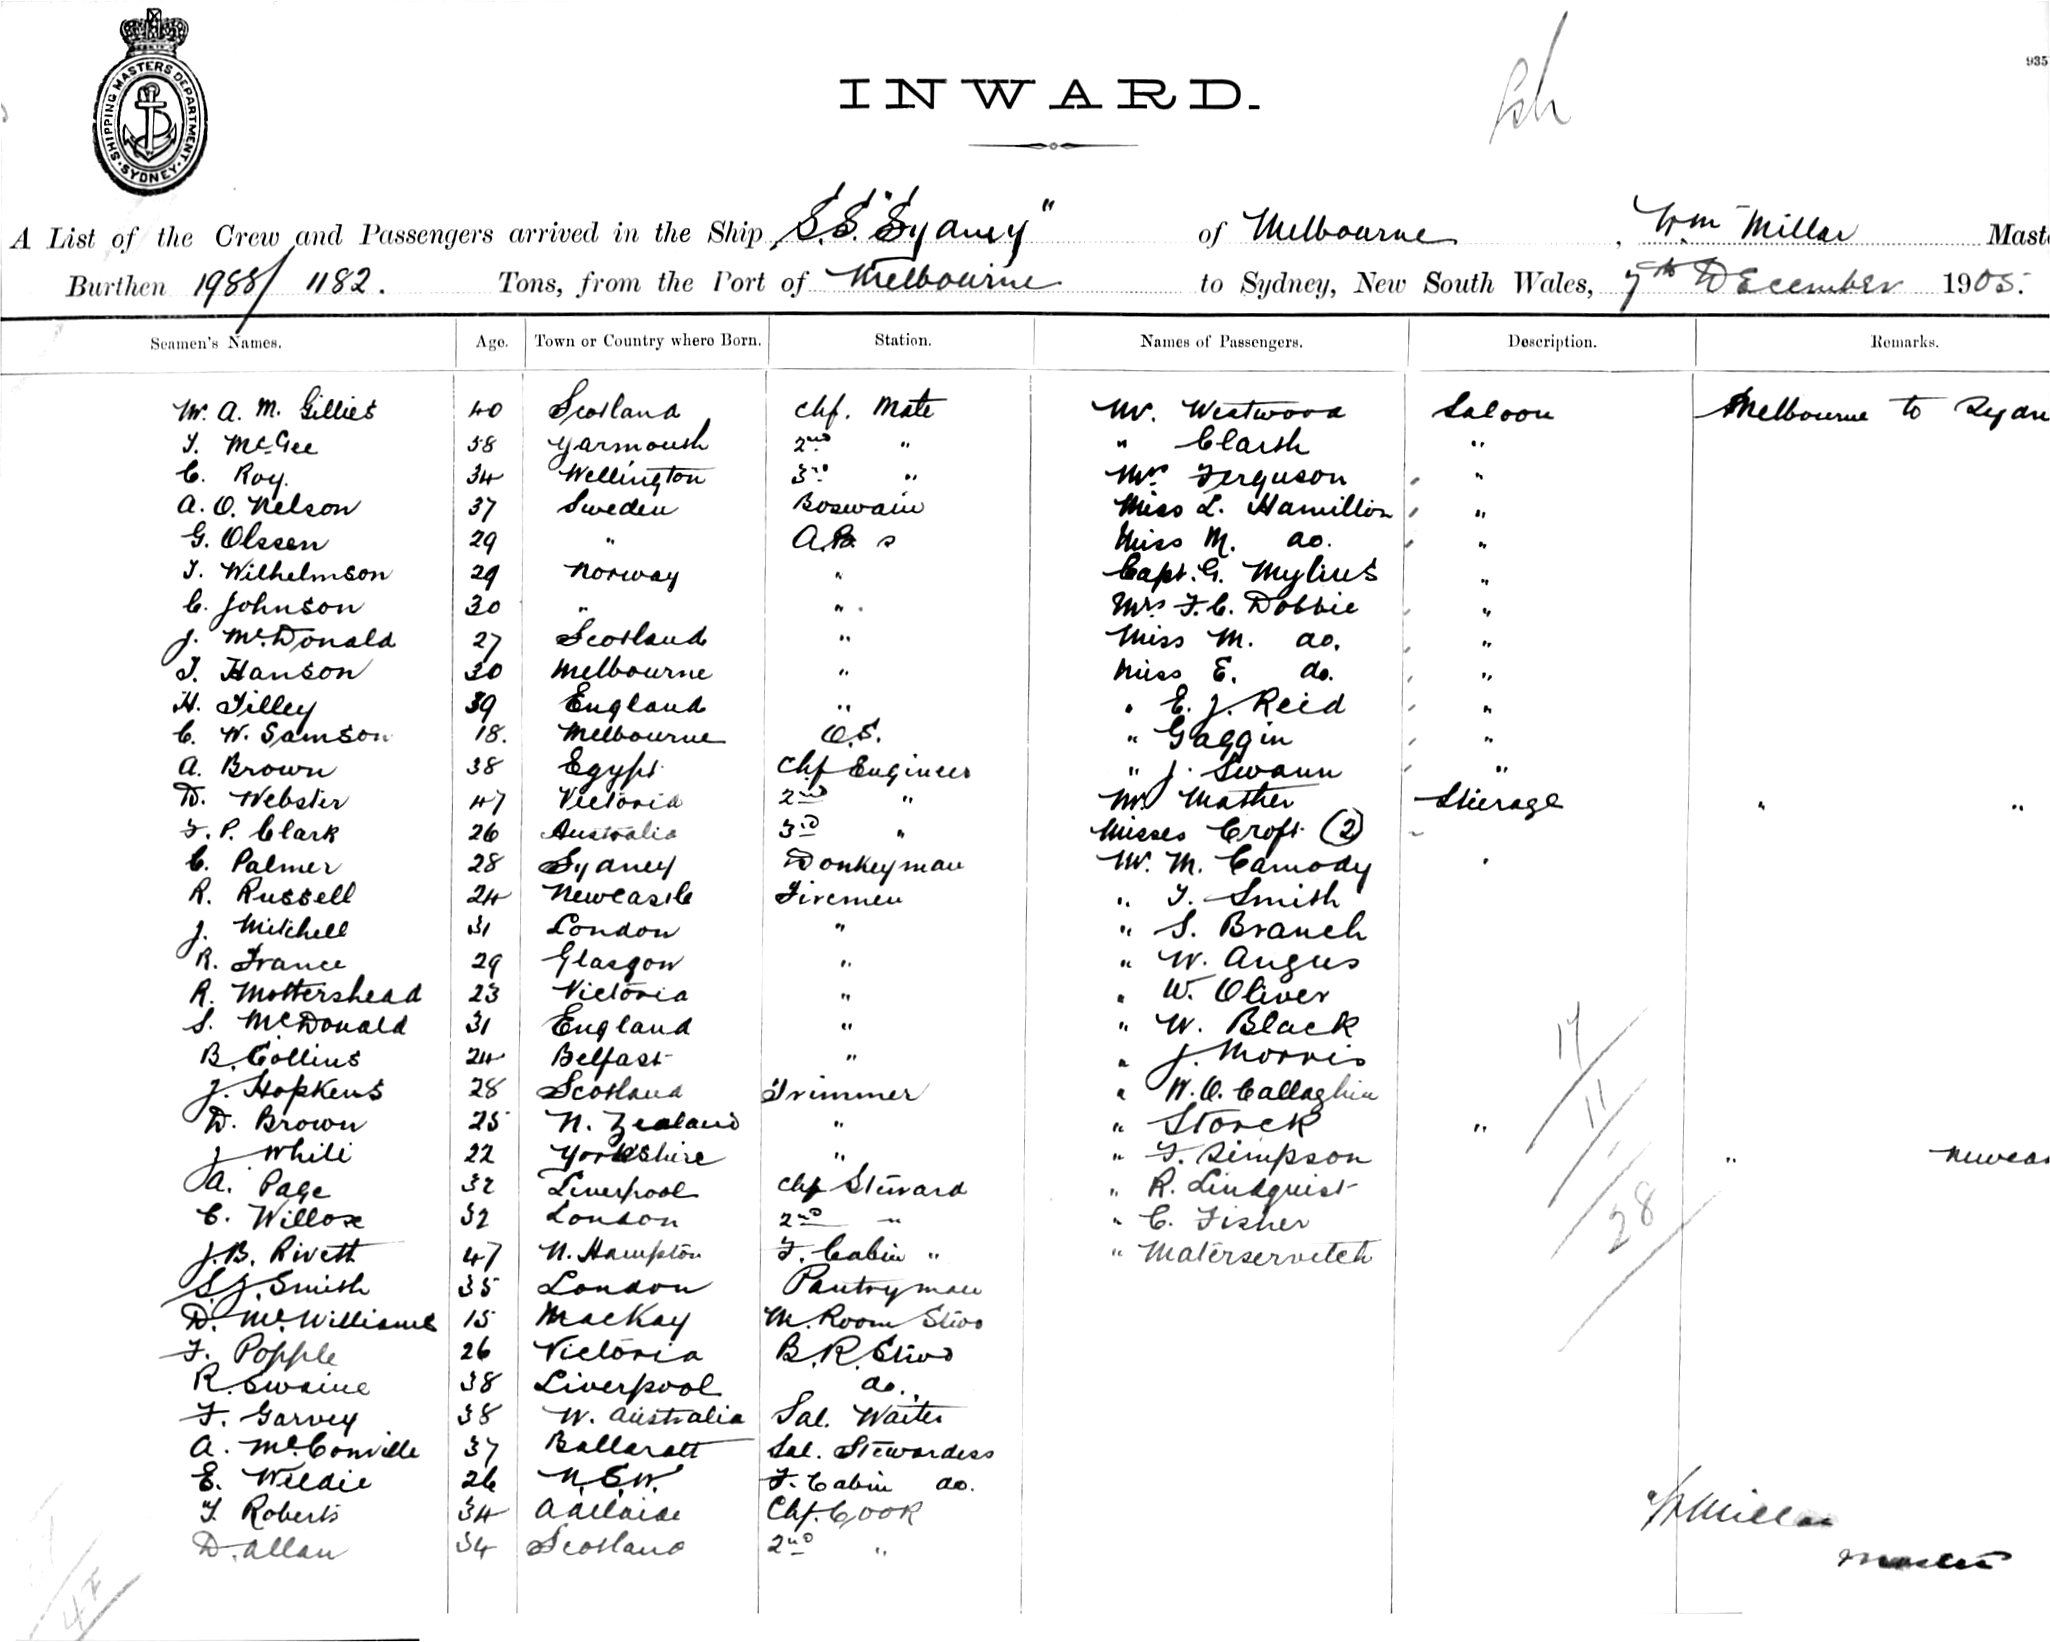 SHIPPING MASTERS DEPARTMENT
SYDNEY
935
INWARD.
A List of the Crew and Passengers arrived in the Ship S.S. "Sydney" of Melbourne, Wm Millar Maste
Burthen 1988/1182. Tons, from the Port of Melbourne to Sydney, New South Wales, 7th December 1905.
Seamen's Names. Age. Town or Country where Born. Station. Names of Passengers. Description. Remarks.
W. A. M. Gillies 40 Scotland Chf. Mate Mr. Westwood Saloon Melbourne to Sydn
T. McGee 38 Yarmouth 2nd " " Clarsh "
C. Roy. 34 Wellington 3rd " Mrs Ferguson "
A. O. Nelson 37 Sweden Boswain Miss L. Hamilton "
G. Olssen 29 " A.B. s Miss M. do. "
T. Wilhelmson 29 Norway " Capt. G. Mylius "
C. Johnson 30 " " Mrs F. C. Dobbie "
J. McDonald 27 Scotland " Miss M. do. "
T. Hanson 30 Melbourne " Miss E. do. "
H. Tilley 39 England " " E. J. Reid "
C. W. Samson 18. Melbourne O.S. " Gaggin "
A. Brown 38 Egypt Chf Engineer " J. Swann "
D. Webster 47 Victoria 2nd " Mr Mather Steerage " "
F. P. Clark 26 Australia 3rd " Misses Croft (2)
C. Palmer 28 Sydney Donkeyman Mr. M. Camody
R. Russell 24 Newcastle Firemen " T. Smith
J. Mitchell 31 London " " S. Branch
R. France 29 Glasgow " " W. Angus
R. Mottershead 23 Victoria " " W. Oliver
S. McDonald 31 England " " W. Black
B. Collins 24 Belfast " " J. Morris
J. Hopkens 28 Scotland Trimmer " W. O. Callaghin
D. Brown 25 N. Zealand " " Storck "
J White 22 Yorkshire " " F. Simpson "
A. Page 32 Liverpool Chf Steward " R. Lindquist
C. Willox 32 London 2nd " " C. Fisher
J. B. Rivett 47 N. Hampton F. Cabin " " Materservitch
S. J. Smith 35 London Pantryman
D. McWilliams 15 Mackay M. Room Stwd
F. Popple 26 Victoria B. R. Stwd
R. Swaine 38 Liverpool do.
F. Garvey 38 W. Australia Sal. Waiter
A. McConville 37 Ballaratt Sal. Stewardess
E. Weldie 26 N.S.W. F. Cabin do.
T. Roberts 34 Adelaide Chf. Cook
D. Allan 34 Scotland 2nd "
17
11
28
W Millar
Master